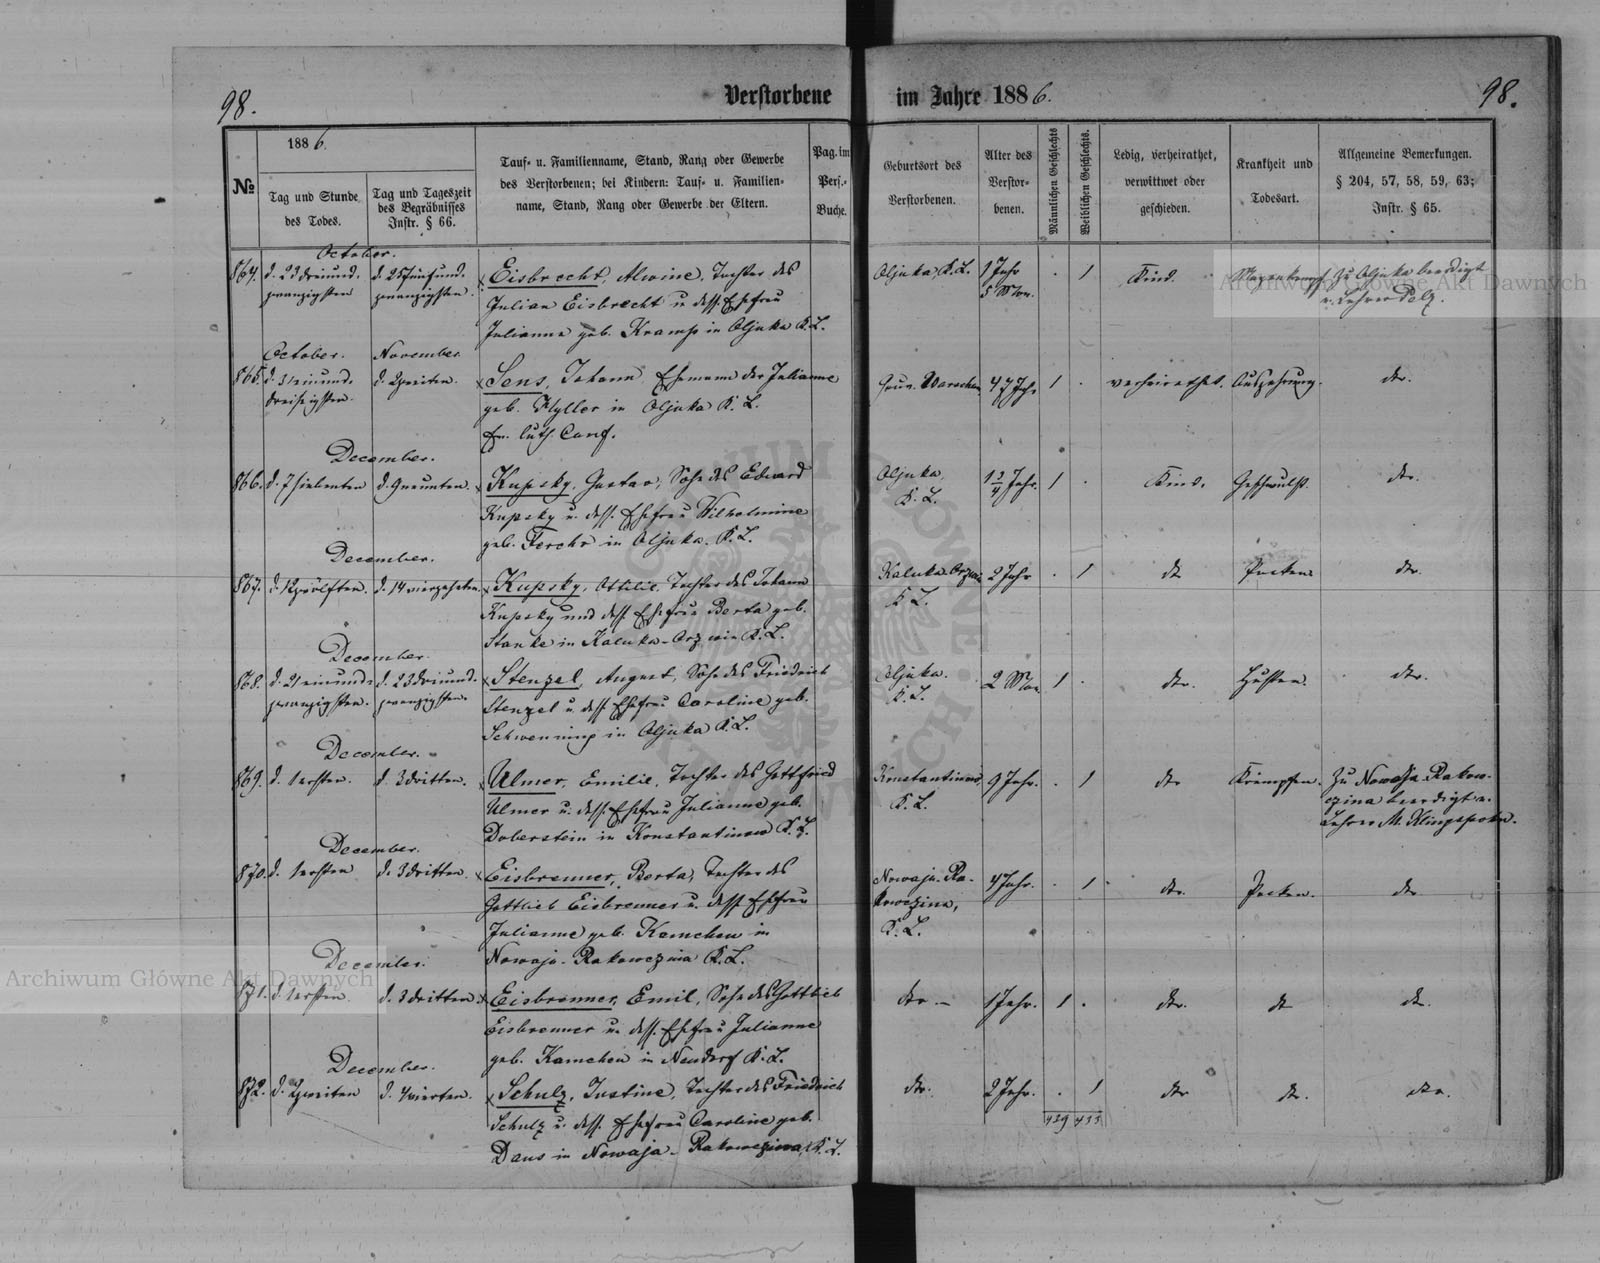 98.
Verstorbene im Jahre 1886.
98.
№
1886.
Tag und Stunde des Todes.
Tag und Tageszeit des Begräbnisses Instr. § 66.
Tauf- u. Familienname, Stand, Rang oder Gewerbe
des Verstorbenen; bei Kindern: Tauf- u. Familien-
name, Stand, Rang oder Gewerbe der Eltern.
Pag. im Pers.- Buche.
Geburtsort des Verstorbenen.
Alter des Verstor- benen.
Männlichen Geschlechts
Weiblichen Geschlechts.
Ledig, verheirathet, verwittwet oder geschieden.
Krankheit und Todesart.
Allgemeine Bemerkungen.
§ 204, 57, 58, 59, 63;
Instr. § 65.
October.
864. d. 23 dreiund- d. 25 fünfund- Eisbrecht, Alwine, Tochter des Oljuka, K. L. 1 Jahr . 1 Kind. Magenkrampf Zu Oljuka beerdigt
zwanzigsten zwanzigsten. Julian Eisbrecht u. dess. Ehefrau 5 Mon. v. Lehrer Pelz.
Julianna geb. Kramp in Oljuka K. L.
October. November.
865. d. 31 einund- d. 2 zweiten. Sens, Johann Ehemann der Julianne Gouv. Warschau. 47 Jahr 1 . verheirathet. Auszehrung. dto.
dreißigsten. geb. Hyller in Oljuka K. L.
ev. luth. Conf.
December.
866. d. 7 siebenten d. 9 neunten. Kupsky, Gustav, Sohn des Eduard Oljuka, 1 3/4 Jahr. 1 . Kind. Geschwulst. dto.
Kupsky u. dess. Ehefrau Wilhelmine K. L.
geb. Ferchr in Oljuka. K. L.
December.
867. d. 12 zwölften. d. 14 vierzehnten. Kupsky, Ottilie, Tochter des Johann 2 Jahr . 1 dto Pocken. dto.
Kupsky und dess. Ehefrau Berta geb. K. L.
Stanke in K. L.
December.
868. d. 21 einund- d. 23 dreiund- Stenzel, August, Sohn des Friedrich Oljuka. 2 Mon. 1 . dto. Husten. dto.
zwanzigsten. zwanzigsten. Stenzel u. dess. Ehefrau Caroline geb. K. L.
Schwenning in Oljuka K. L.
December.
869. d. 1 ersten. d. 3 dritten. Ulmer, Emilie, Tochter des Gottfried Konstantinow, 9 Jahr. . 1 dto Krämpfen. Zu Nowaja-Rakow-
Ulmer u. dess. Ehefrau Julianne geb. K. L. czina beerdigt v.
Doberstein in Konstantinow K. L. Lehrer M. Klingspohn.
December.
870. d. 1 ersten d. 3 dritten. Eisbrenner, Berta, Tochter des Nowaja-Ra- 4 Jahr. . 1 dto. Pocken. dto
Gottlieb Eisbrenner u. dess Ehefrau kowczina,
Julianne geb. Kamchen in K. L.
Nowaja-Rakowczina K. L.
December.
871. d. 1 ersten d. 3 dritten. Eisbrenner, Emil, Sohn des Gottlieb dto 1 Jahr. 1 . dto. dto dto.
Eisbrenner u. dess. Ehefrau Julianne
geb. Kamchen in Neudorf K. L.
December.
872. d. 2 zweiten d. 4 vierten. Schulz, Justine, Tochter des Friedrich dto. 2 Jahr. . 1 dto dto. dto.
Schulz u. dess. Ehefrau Caroline geb. 439 433
Daus in Nowaja-Rakowczina, K. L.
Archiwum Główne Akt Dawnych
Archiwum Główne Akt Dawnych